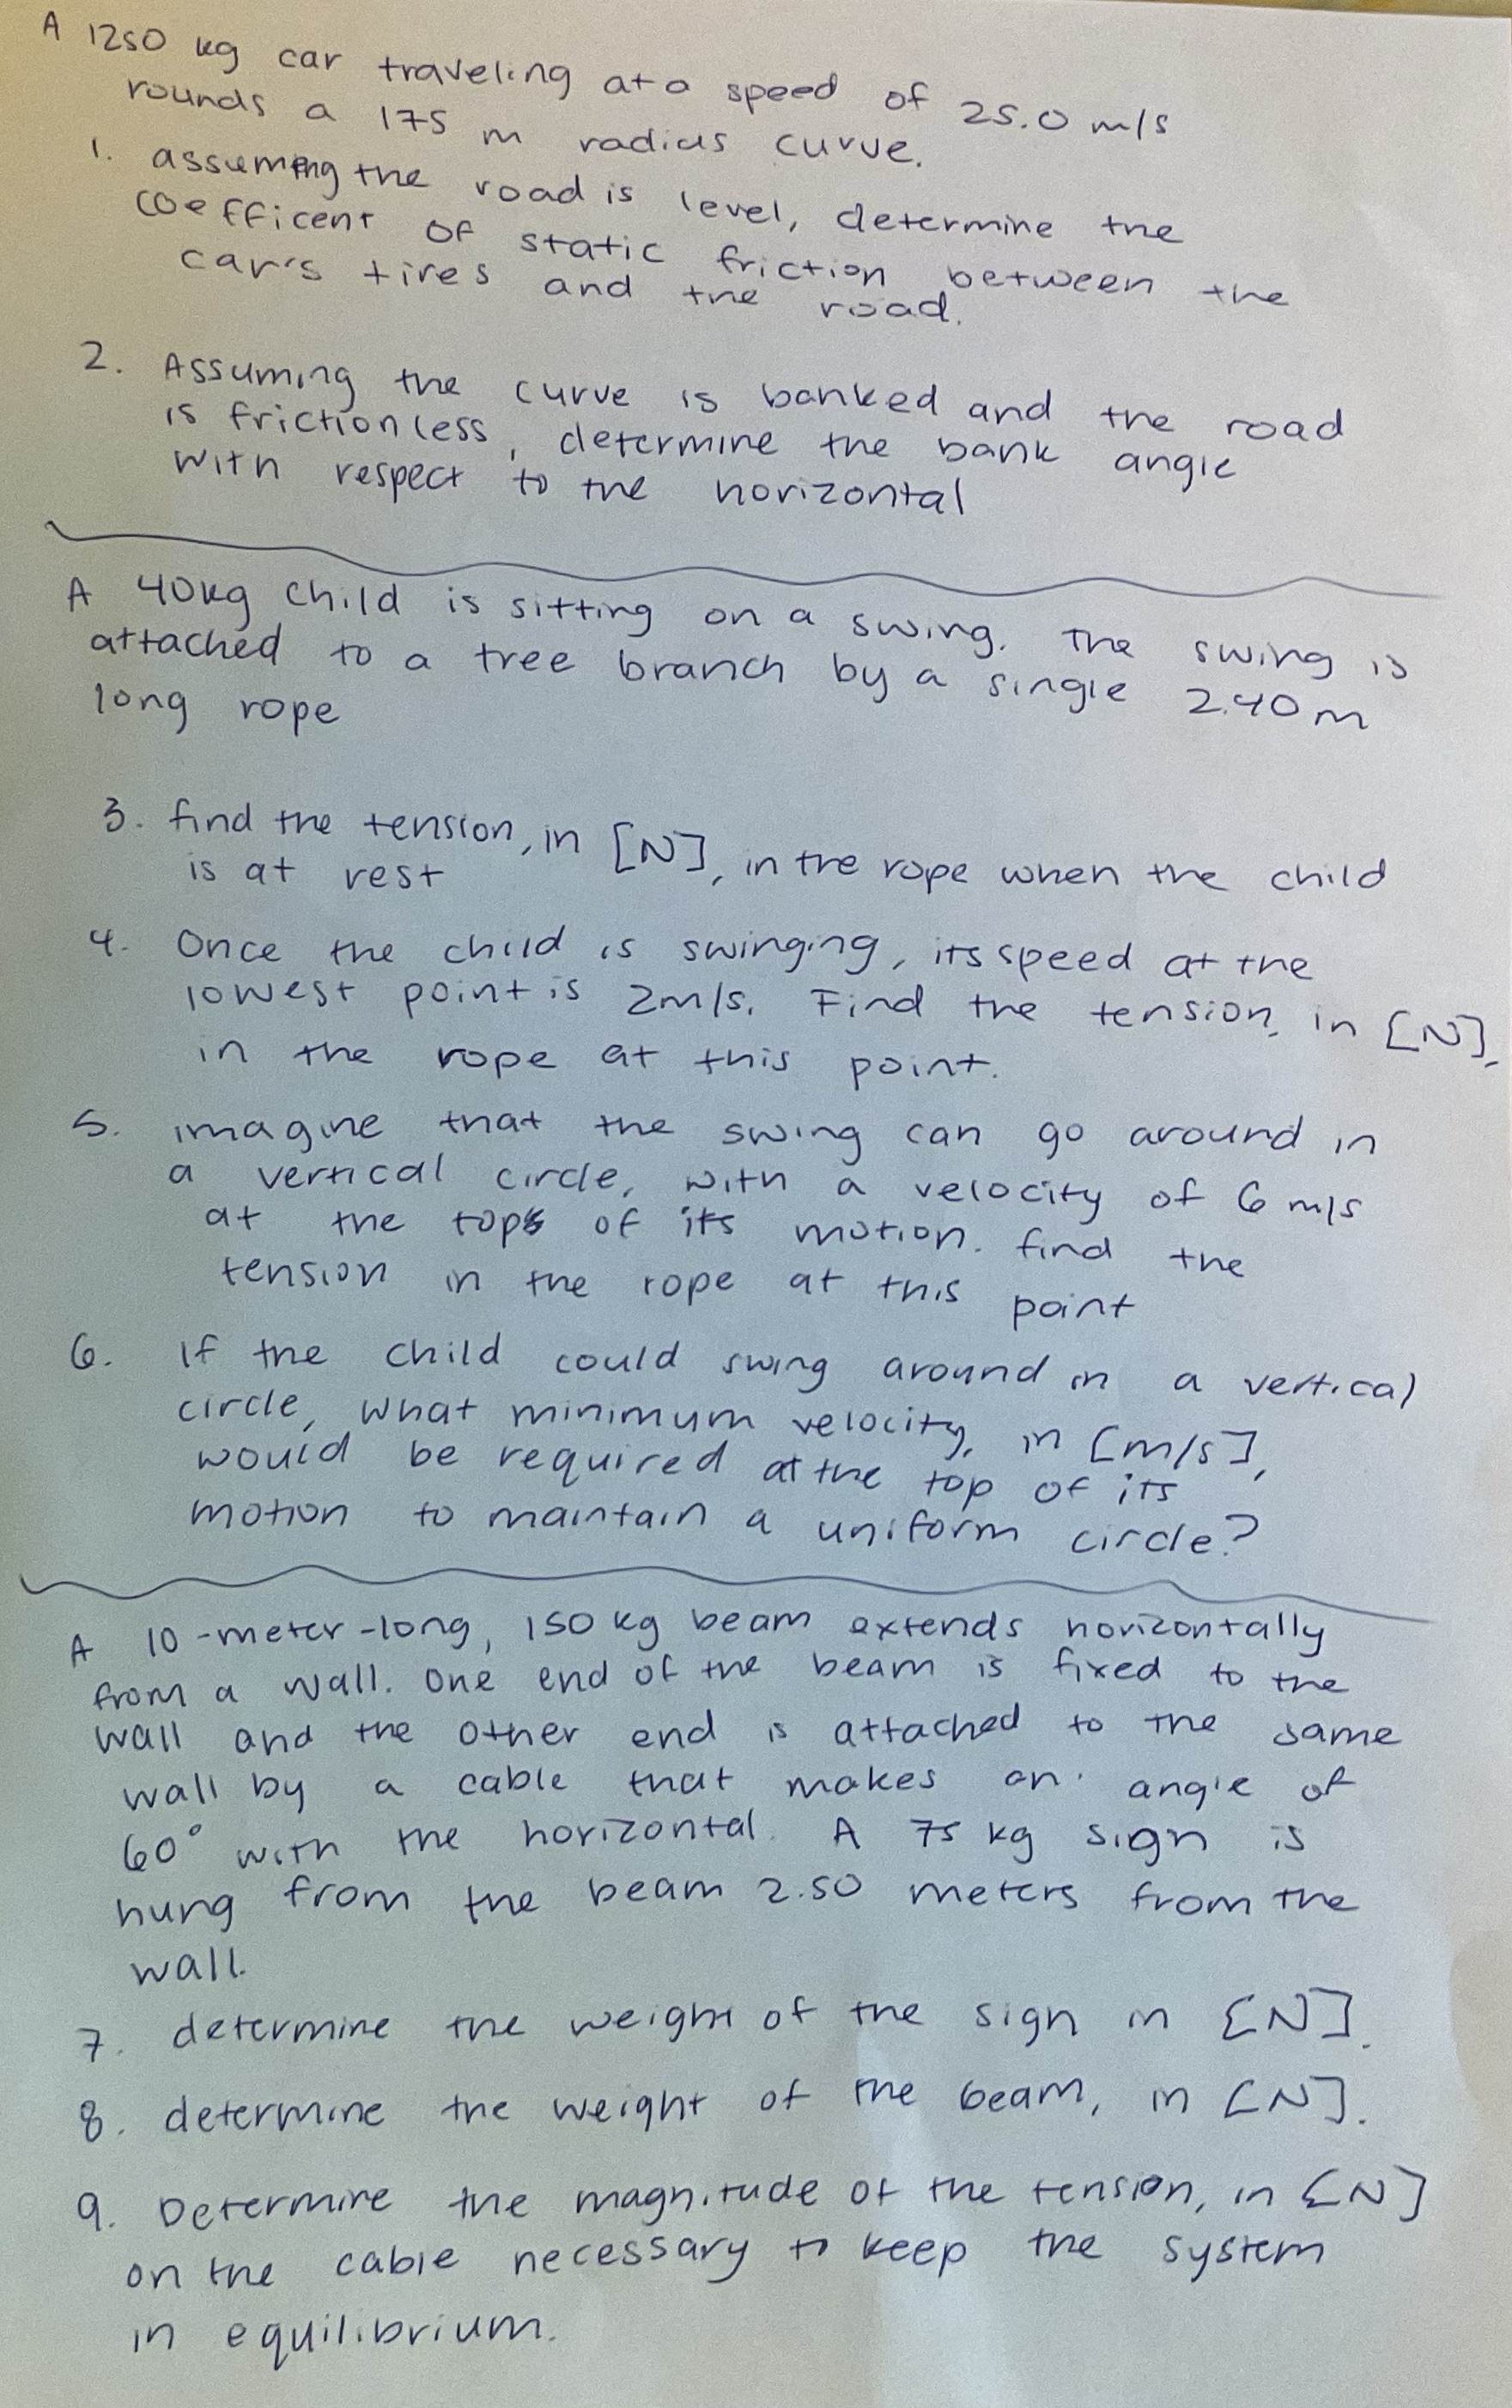 A 1250 kg car traveling at a speed of 25.0 m/s
rounds a 175 m radius curve.
1. assuming the road is level, determine the
coefficent of static friction between the
car's tires and the road.
2. Assuming the curve is banked and the road
is frictionless, determine the bank angle
with respect to the horizontal
A 40kg child is sitting on a swing. The swing is
attached to a tree branch by a single 2.40m
long rope
3. find the tension, in [N], in the rope when the child
is at rest
4. Once the child is swinging, its speed at the
lowest point is 2m/s. Find the tension, in [N],
in the rope at this point.
5. imagine that the swing can go around in
a vertical circle, with a velocity of 6 m/s
at the top of its motion. find the
tension in the rope at this point
6. If the child could swing around in a vertical
circle, what minimum velocity, in [m/s],
would be required at the top of its
motion to maintain a uniform circle?
A 10-meter-long, 150 kg beam extends horizontally
from a wall. One end of the beam is fixed to the
wall and the other end is attached to the same
wall by a cable that makes an angle of
60° with the horizontal. A 75 kg sign is
hung from the beam 2.50 meters from the
wall.
7. determine the weight of the sign in [N].
8. determine the weight of the beam, in [N].
9. Determine the magnitude of the tension, in [N]
on the cable necessary to keep the system
in equilibrium.